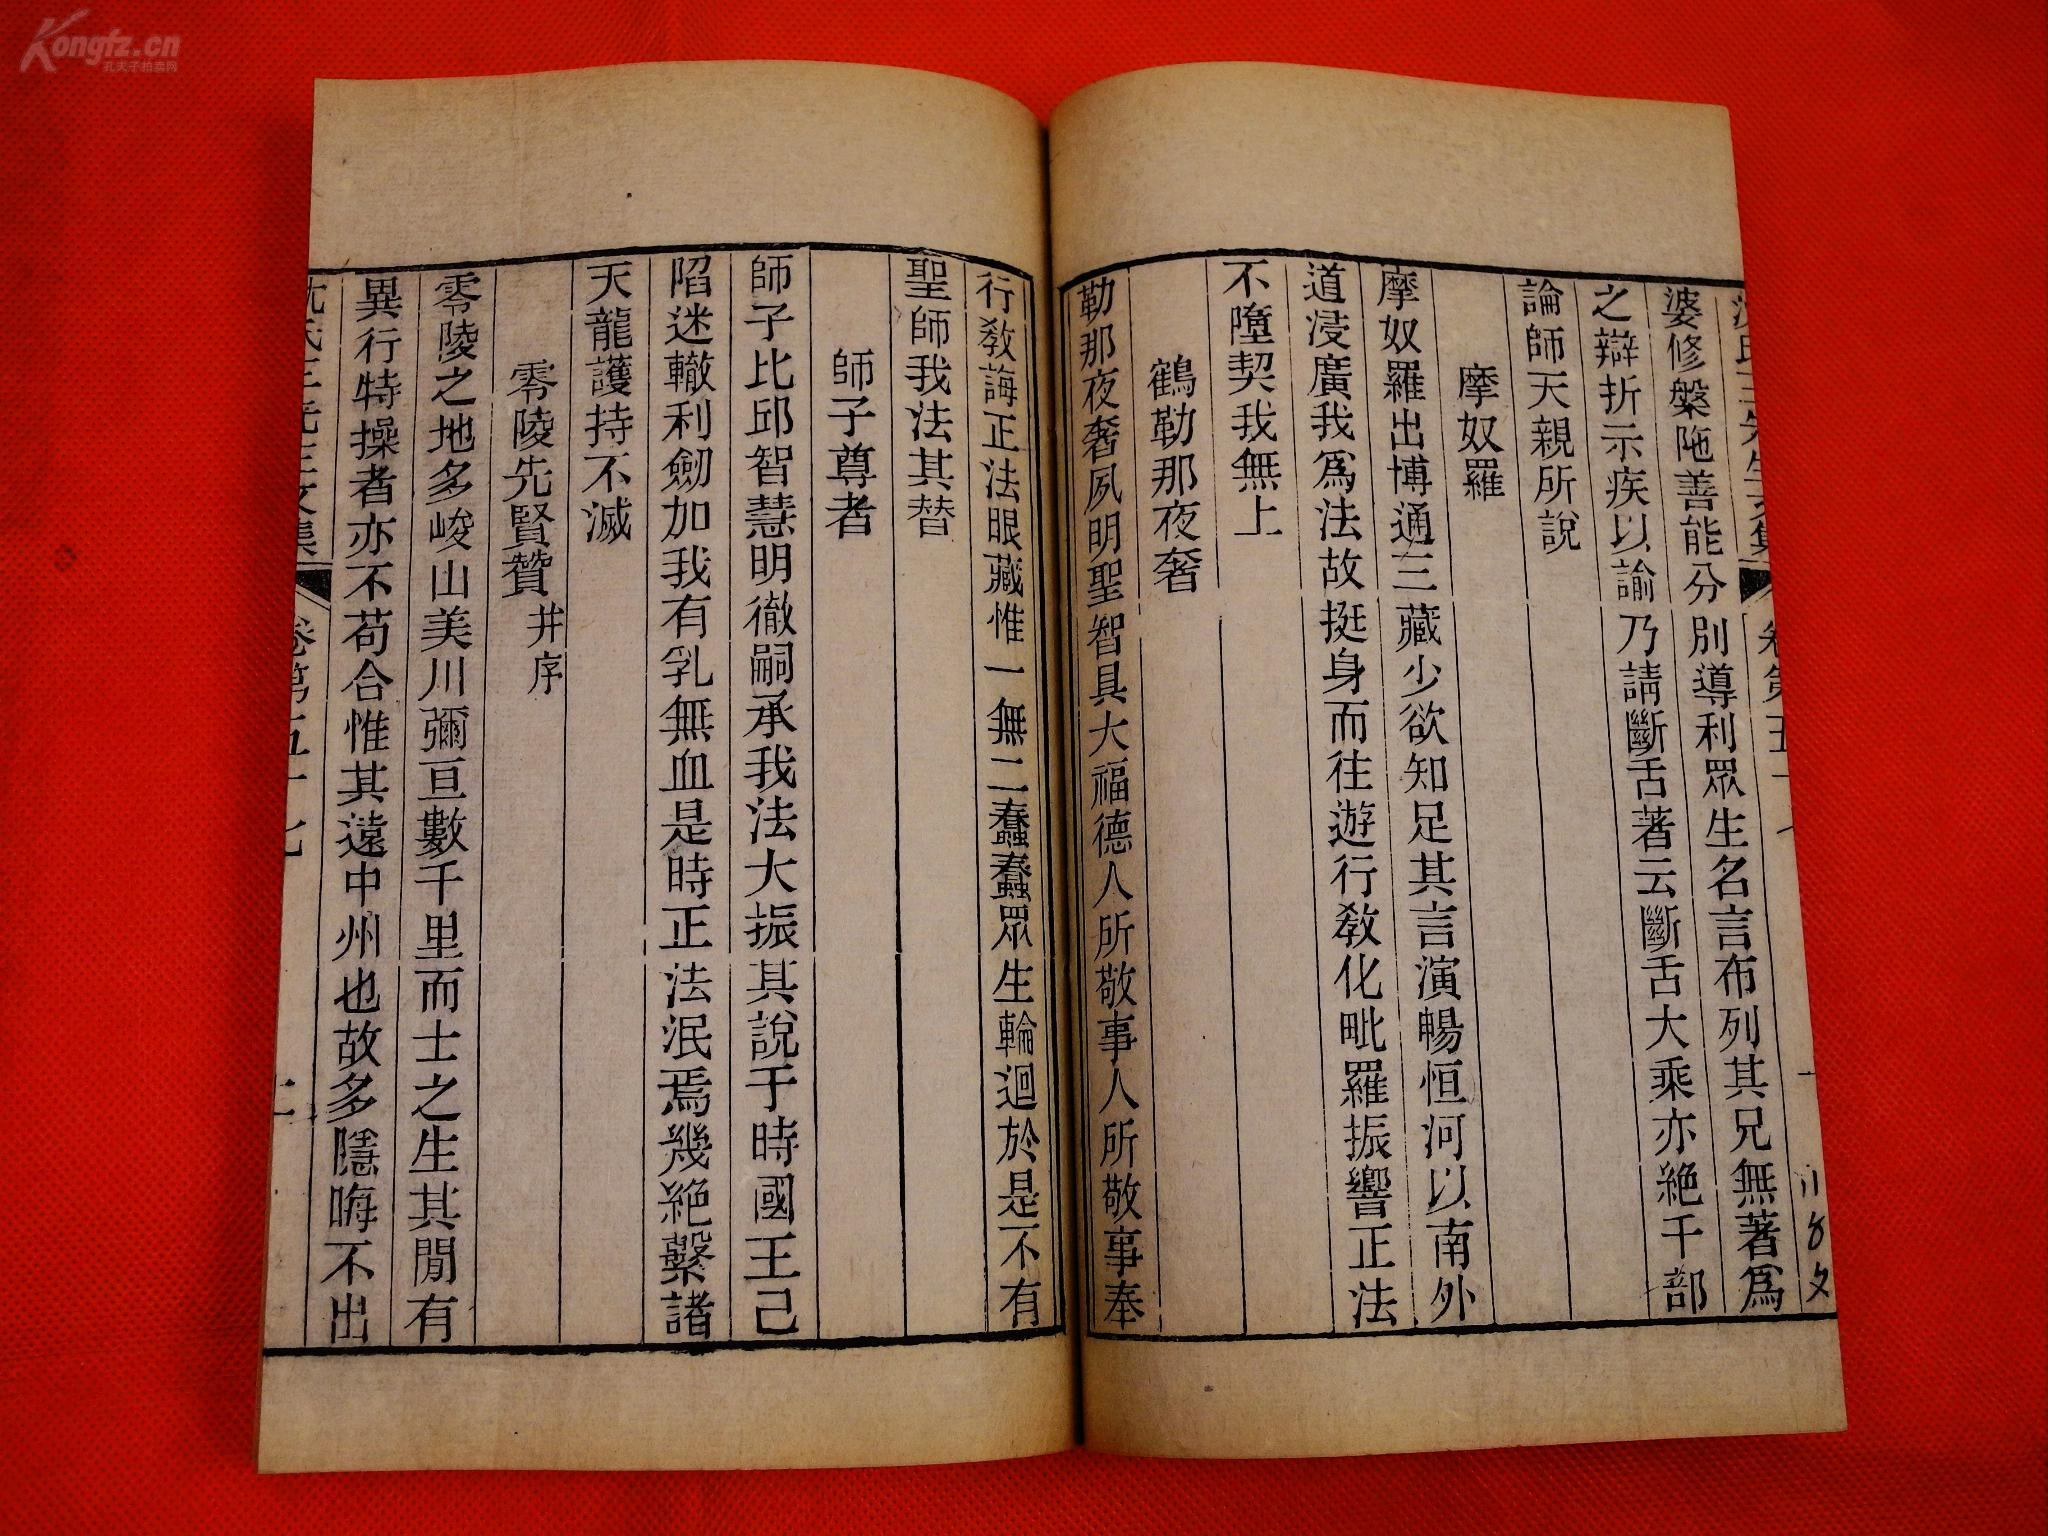 Kongfz.cn
孔夫子拍卖网
婆修槃陁善能分別導利眾生名言布列其兄無著爲
之辯折示疾以諭乃請斷舌著云斷舌大乘亦絶千部
論師天親所說
摩奴羅
摩奴羅出博通三藏少欲知足其言演暢恒河以南外
道浸廣我爲法故挺身而往遊行敎化毗羅振響正法
不墮契我無上
鶴勒那夜奢
勒那夜奢夙明聖智具大福德人所敬事人所敬事奉
行敎誨正法眼藏惟一無二蠢蠢眾生輪迴於是不有
聖師我法其替
師子尊者
師子比邱智慧明徹嗣承我法大振其說于時國王己
陷迷轍利劒加我有乳無血是時正法泯焉幾絶繄諸
天龍護持不滅
零陵先賢贊并序
零陵之地多峻山美川彌亘數千里而士之生其閒有
異行特操者亦不苟合惟其遠中州也故多隱晦不出
沈氏三先生文集 卷第五十七